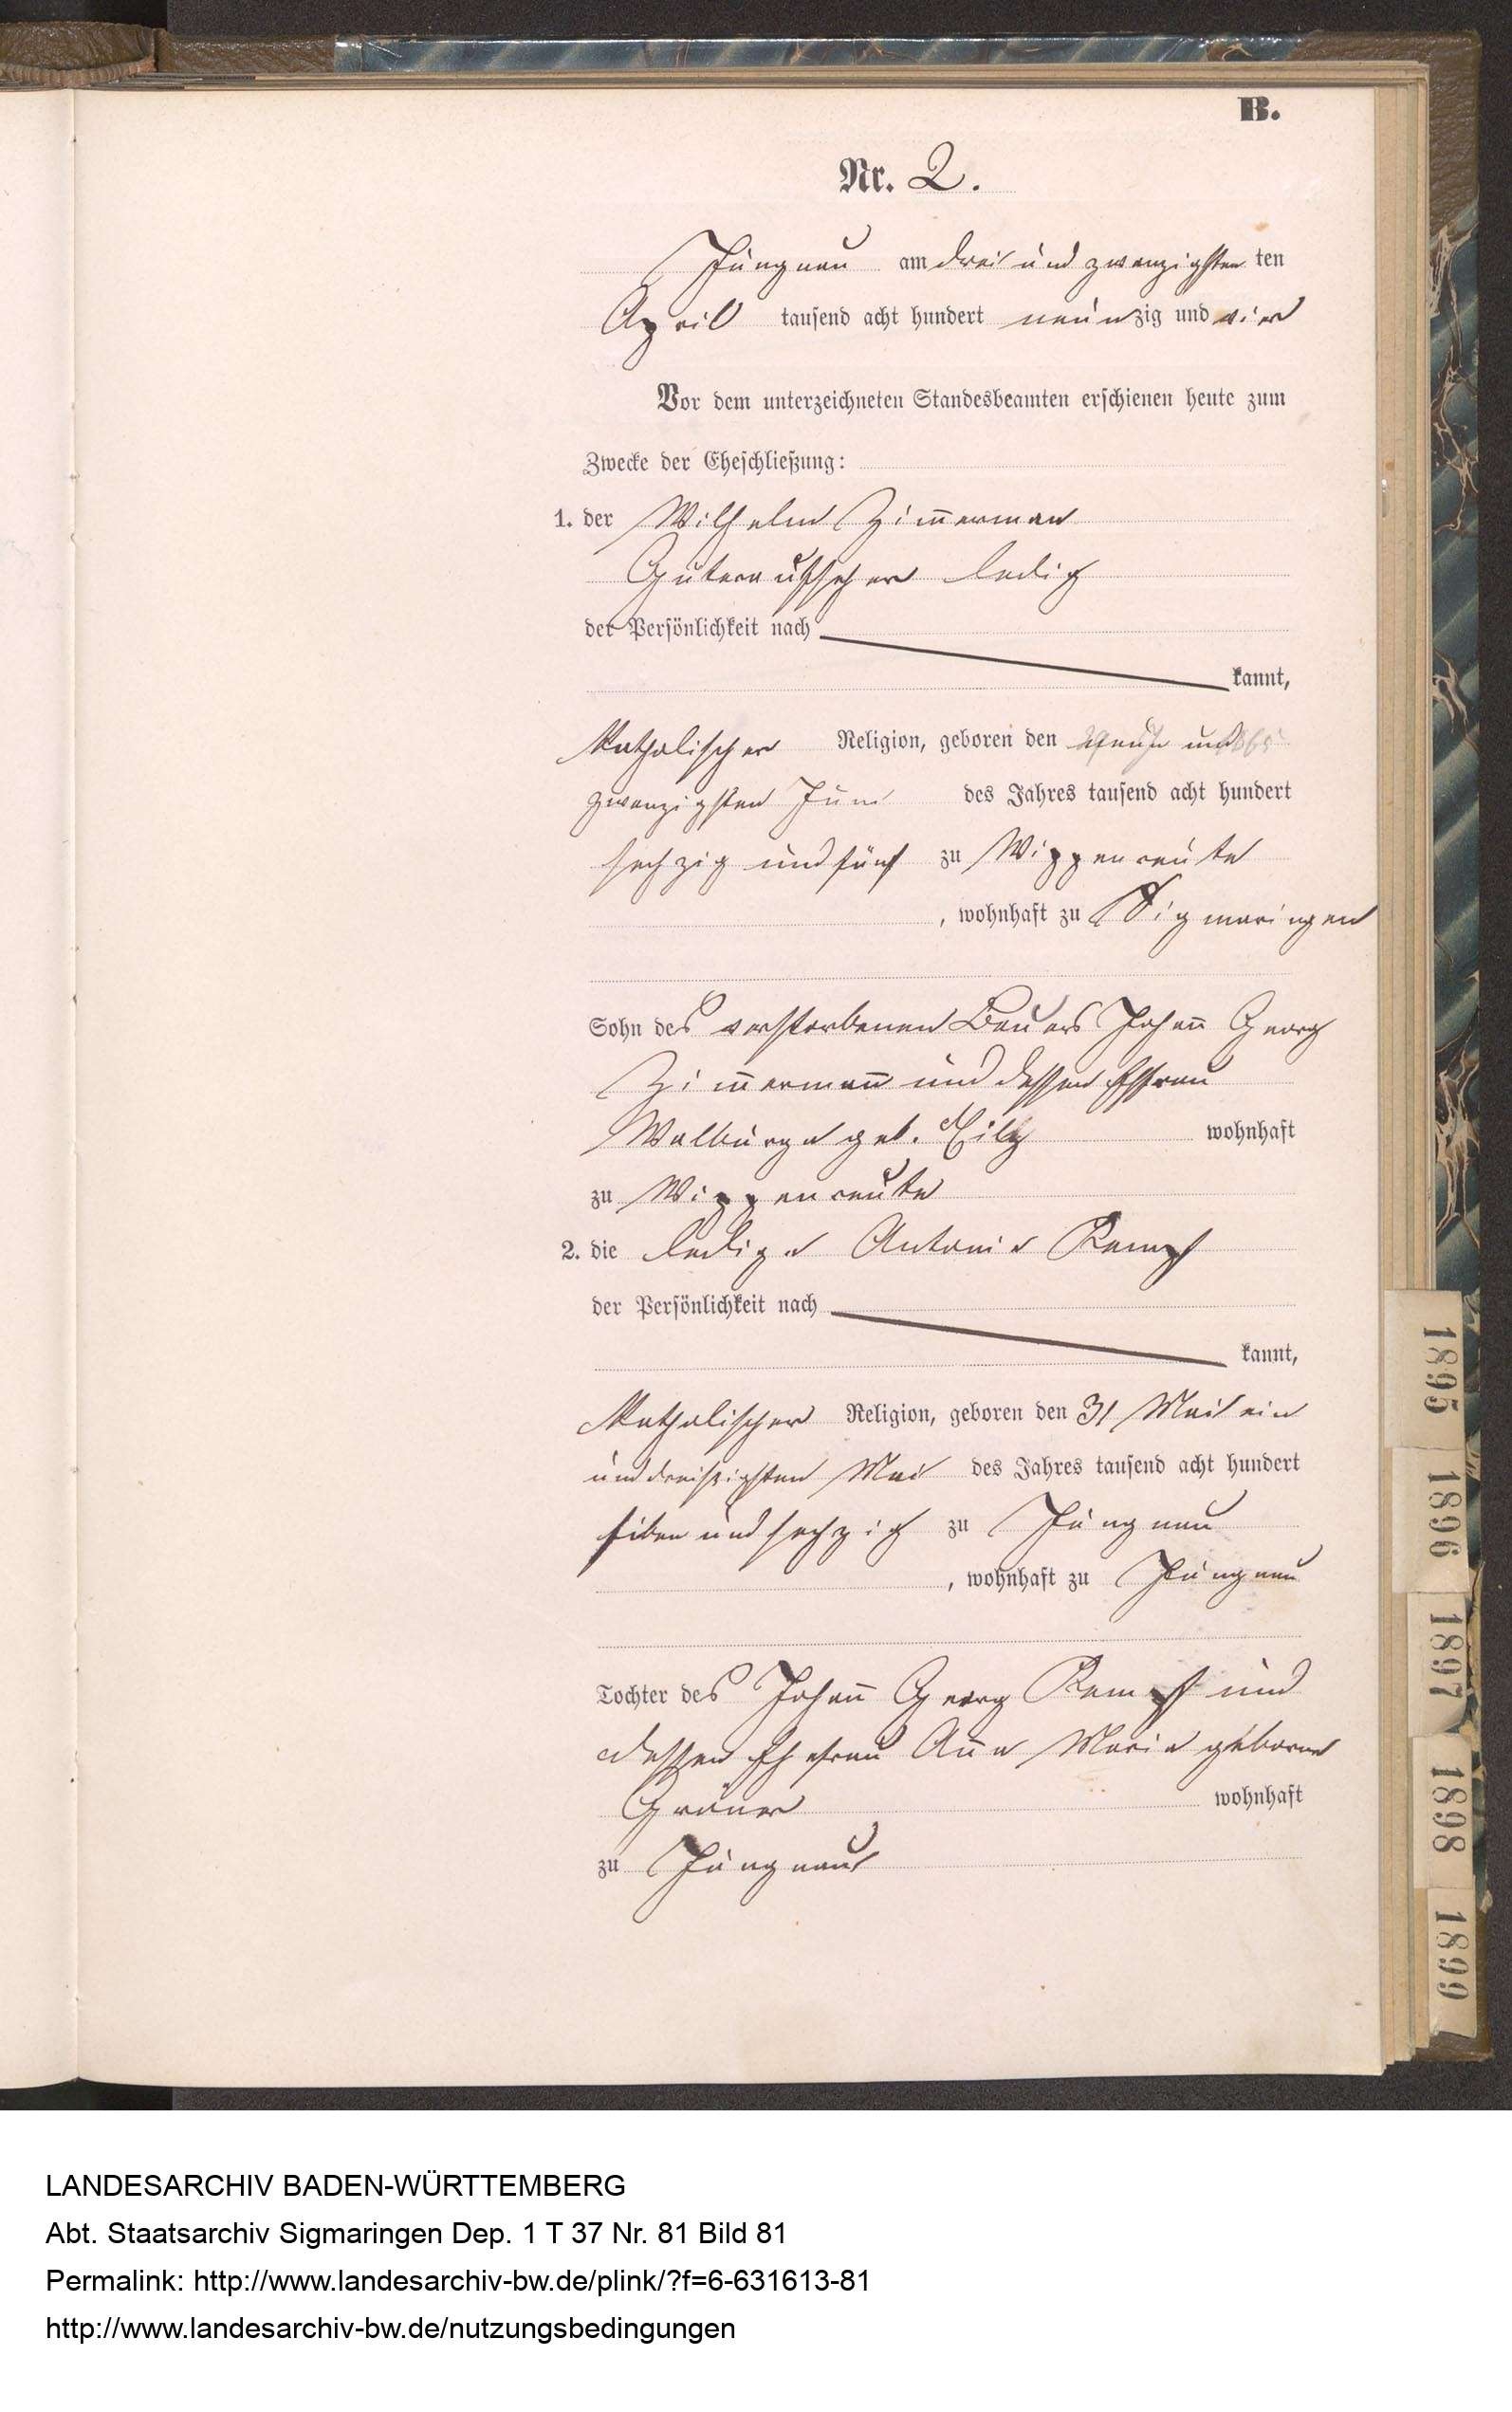 B.
Nr. 2.
Jungnau am drei und zwanzigsten ten
April tausend acht hundert neunzig und vier
Vor dem unterzeichneten Standesbeamten erschienen heute zum
Zwecke der Eheschließung:
1. der Wilhelm Zim̄erman
Güteraufseher ledig
der Persönlichkeit nach
kannt,
katholischer Religion, geboren den und
zwanzigsten Juni des Jahres tausend acht hundert
sechzig und fünf zu Wippenreute
, wohnhaft zu Sigmaringen
Sohn des verstorbenen Bauers Johan̄ Georg
Zim̄erman̄ und dessen Ehfrau
Walburga geb. wohnhaft
zu Wippenreute
2. die ledige Antonie Kempf
der Persönlichkeit nach
kannt,
katholischer Religion, geboren den 31 Mai ein
und dreisigsten Mai des Jahres tausend acht hundert
sieben und sechzig zu Jungnau
, wohnhaft zu Jungnau
Tochter des Johan̄ Georg Kempf und
dessen Ehefrau An̄a Maria geborne
wohnhaft
zu Jungnau
1895
1896
1897
1898
1899
LANDESARCHIV BADEN-WÜRTTEMBERG
Abt. Staatsarchiv Sigmaringen Dep. 1 T 37 Nr. 81 Bild 81
Permalink: http://www.landesarchiv-bw.de/plink/?f=6-631613-81
http://www.landesarchiv-bw.de/nutzungsbedingungen